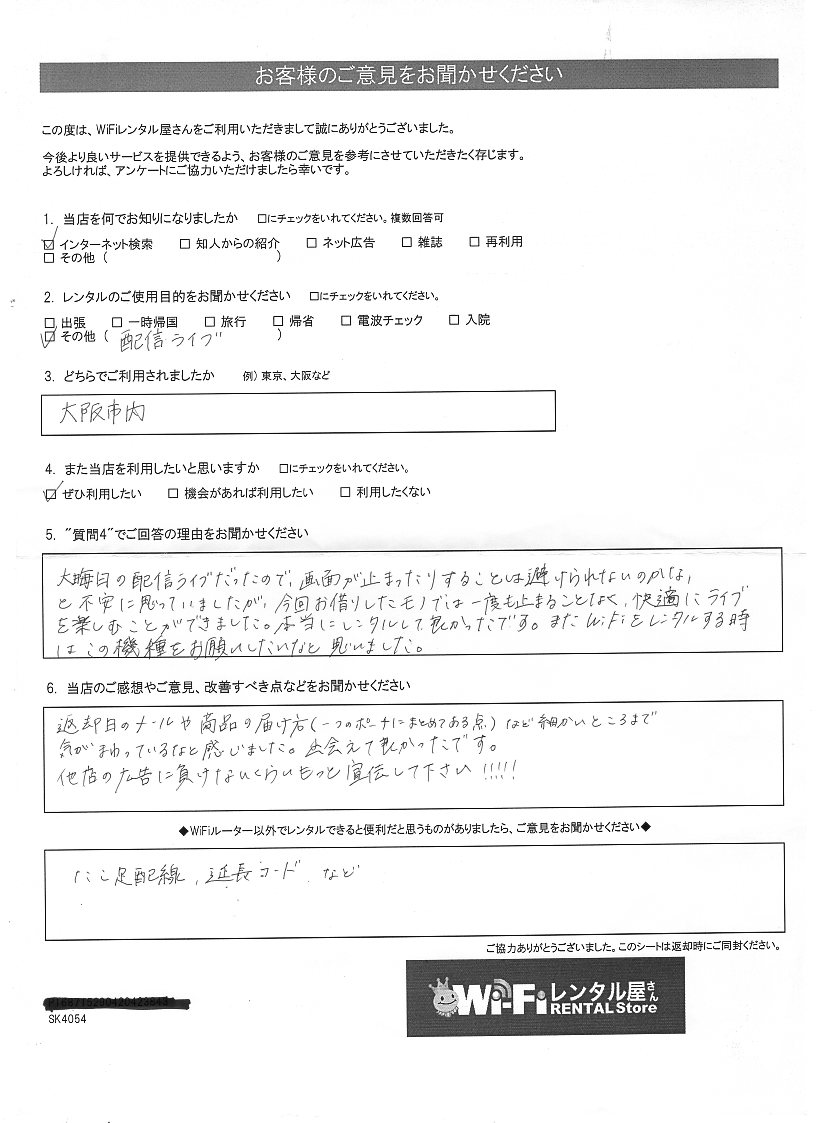 お客様のご意見をお聞かせください
この度は、WiFiレンタル屋さんをご利用いただきまして誠にありがとうございました。
今後より良いサービスを提供できるよう、お客様のご意見を参考にさせていただきたく存じます。
よろしければ、アンケートにご協力いただけましたら幸いです。
1. 当店を何でお知りになりましたか □にチェックをいれてください。複数回答可
☑ インターネット検索 □ 知人からの紹介 □ ネット広告 □ 雑誌 □ 再利用
□ その他 ( )
2. レンタルのご使用目的をお聞かせください □にチェックをいれてください。
□ 出張 □ 一時帰国 □ 旅行 □ 帰省 □ 電波チェック □ 入院
☑ その他 ( 配信ライブ )
3. どちらでご利用されましたか 例) 東京、大阪など
大阪市内
4. また当店を利用したいと思いますか □にチェックをいれてください。
☑ ぜひ利用したい □ 機会があれば利用したい □ 利用したくない
5. "質問4"でご回答の理由をお聞かせください
大晦日の配信ライブだったので、画面が止まったりすることは避けられないのかな、
と不安に思っていましたが、今回お借りしたモノでは一度も止まることなく、快適にライブ
を楽しむことができました。本当にレンタルして良かったです。またWiFiをレンタルする時
はこの機種をお願いしたいなと思いました。
6. 当店のご感想やご意見、改善すべき点などをお聞かせください
返却日のメールや商品の届け方(一つのポーチにまとめてある点)など細かいところまで
気がまわっているなと感じました。出会えて良かったです。
他店の広告に負けないくらいもっと宣伝して下さい!!!!!
◆WiFiルーター以外でレンタルできると便利だと思うものがありましたら、ご意見をお聞かせください◆
たこ足配線、延長コード など
ご協力ありがとうございました。このシートは返却時にご同封ください。
Wi-Fi レンタル屋さん
RENTAL Store
SK4054